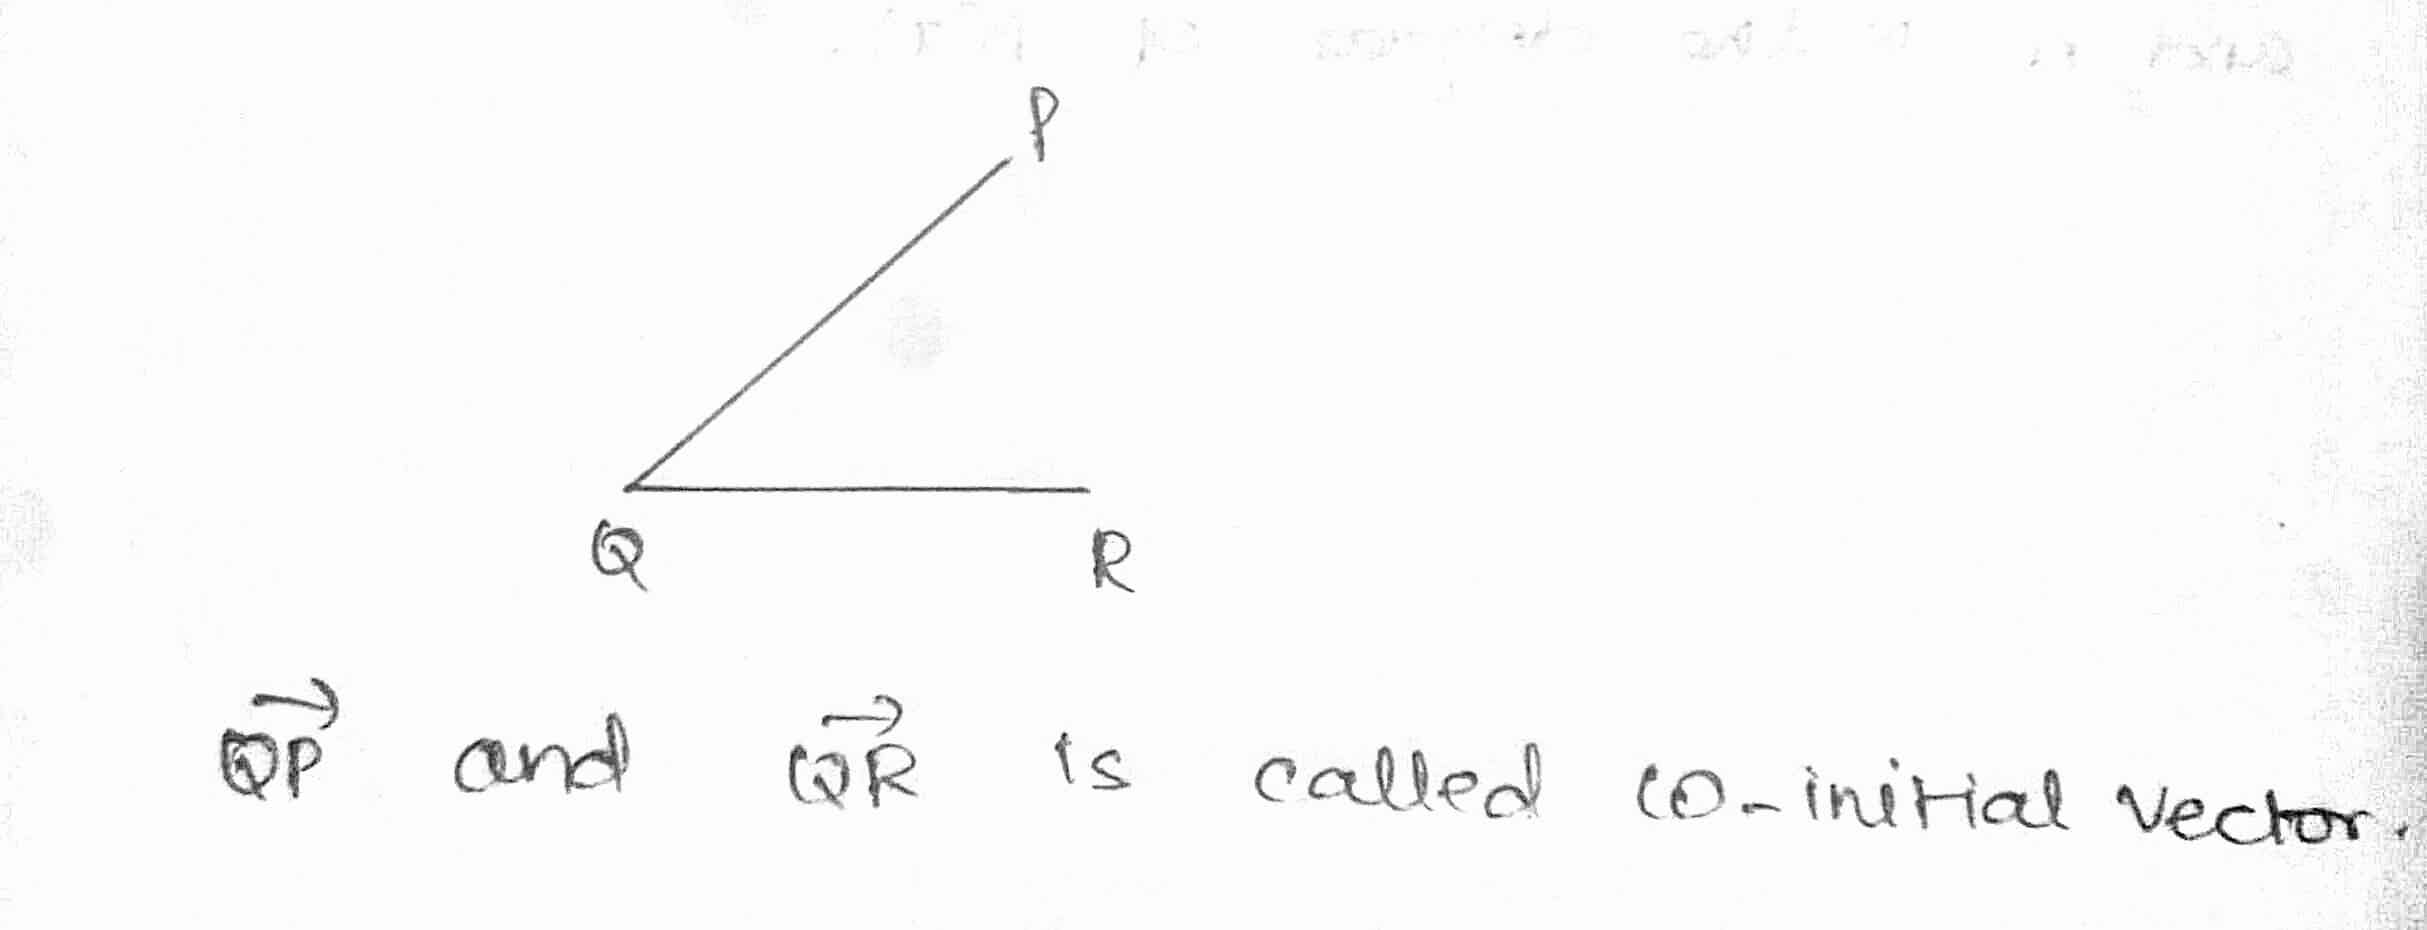 P
Q R
\overrightarrow{QP} and \overrightarrow{QR} is called co-initial vector.